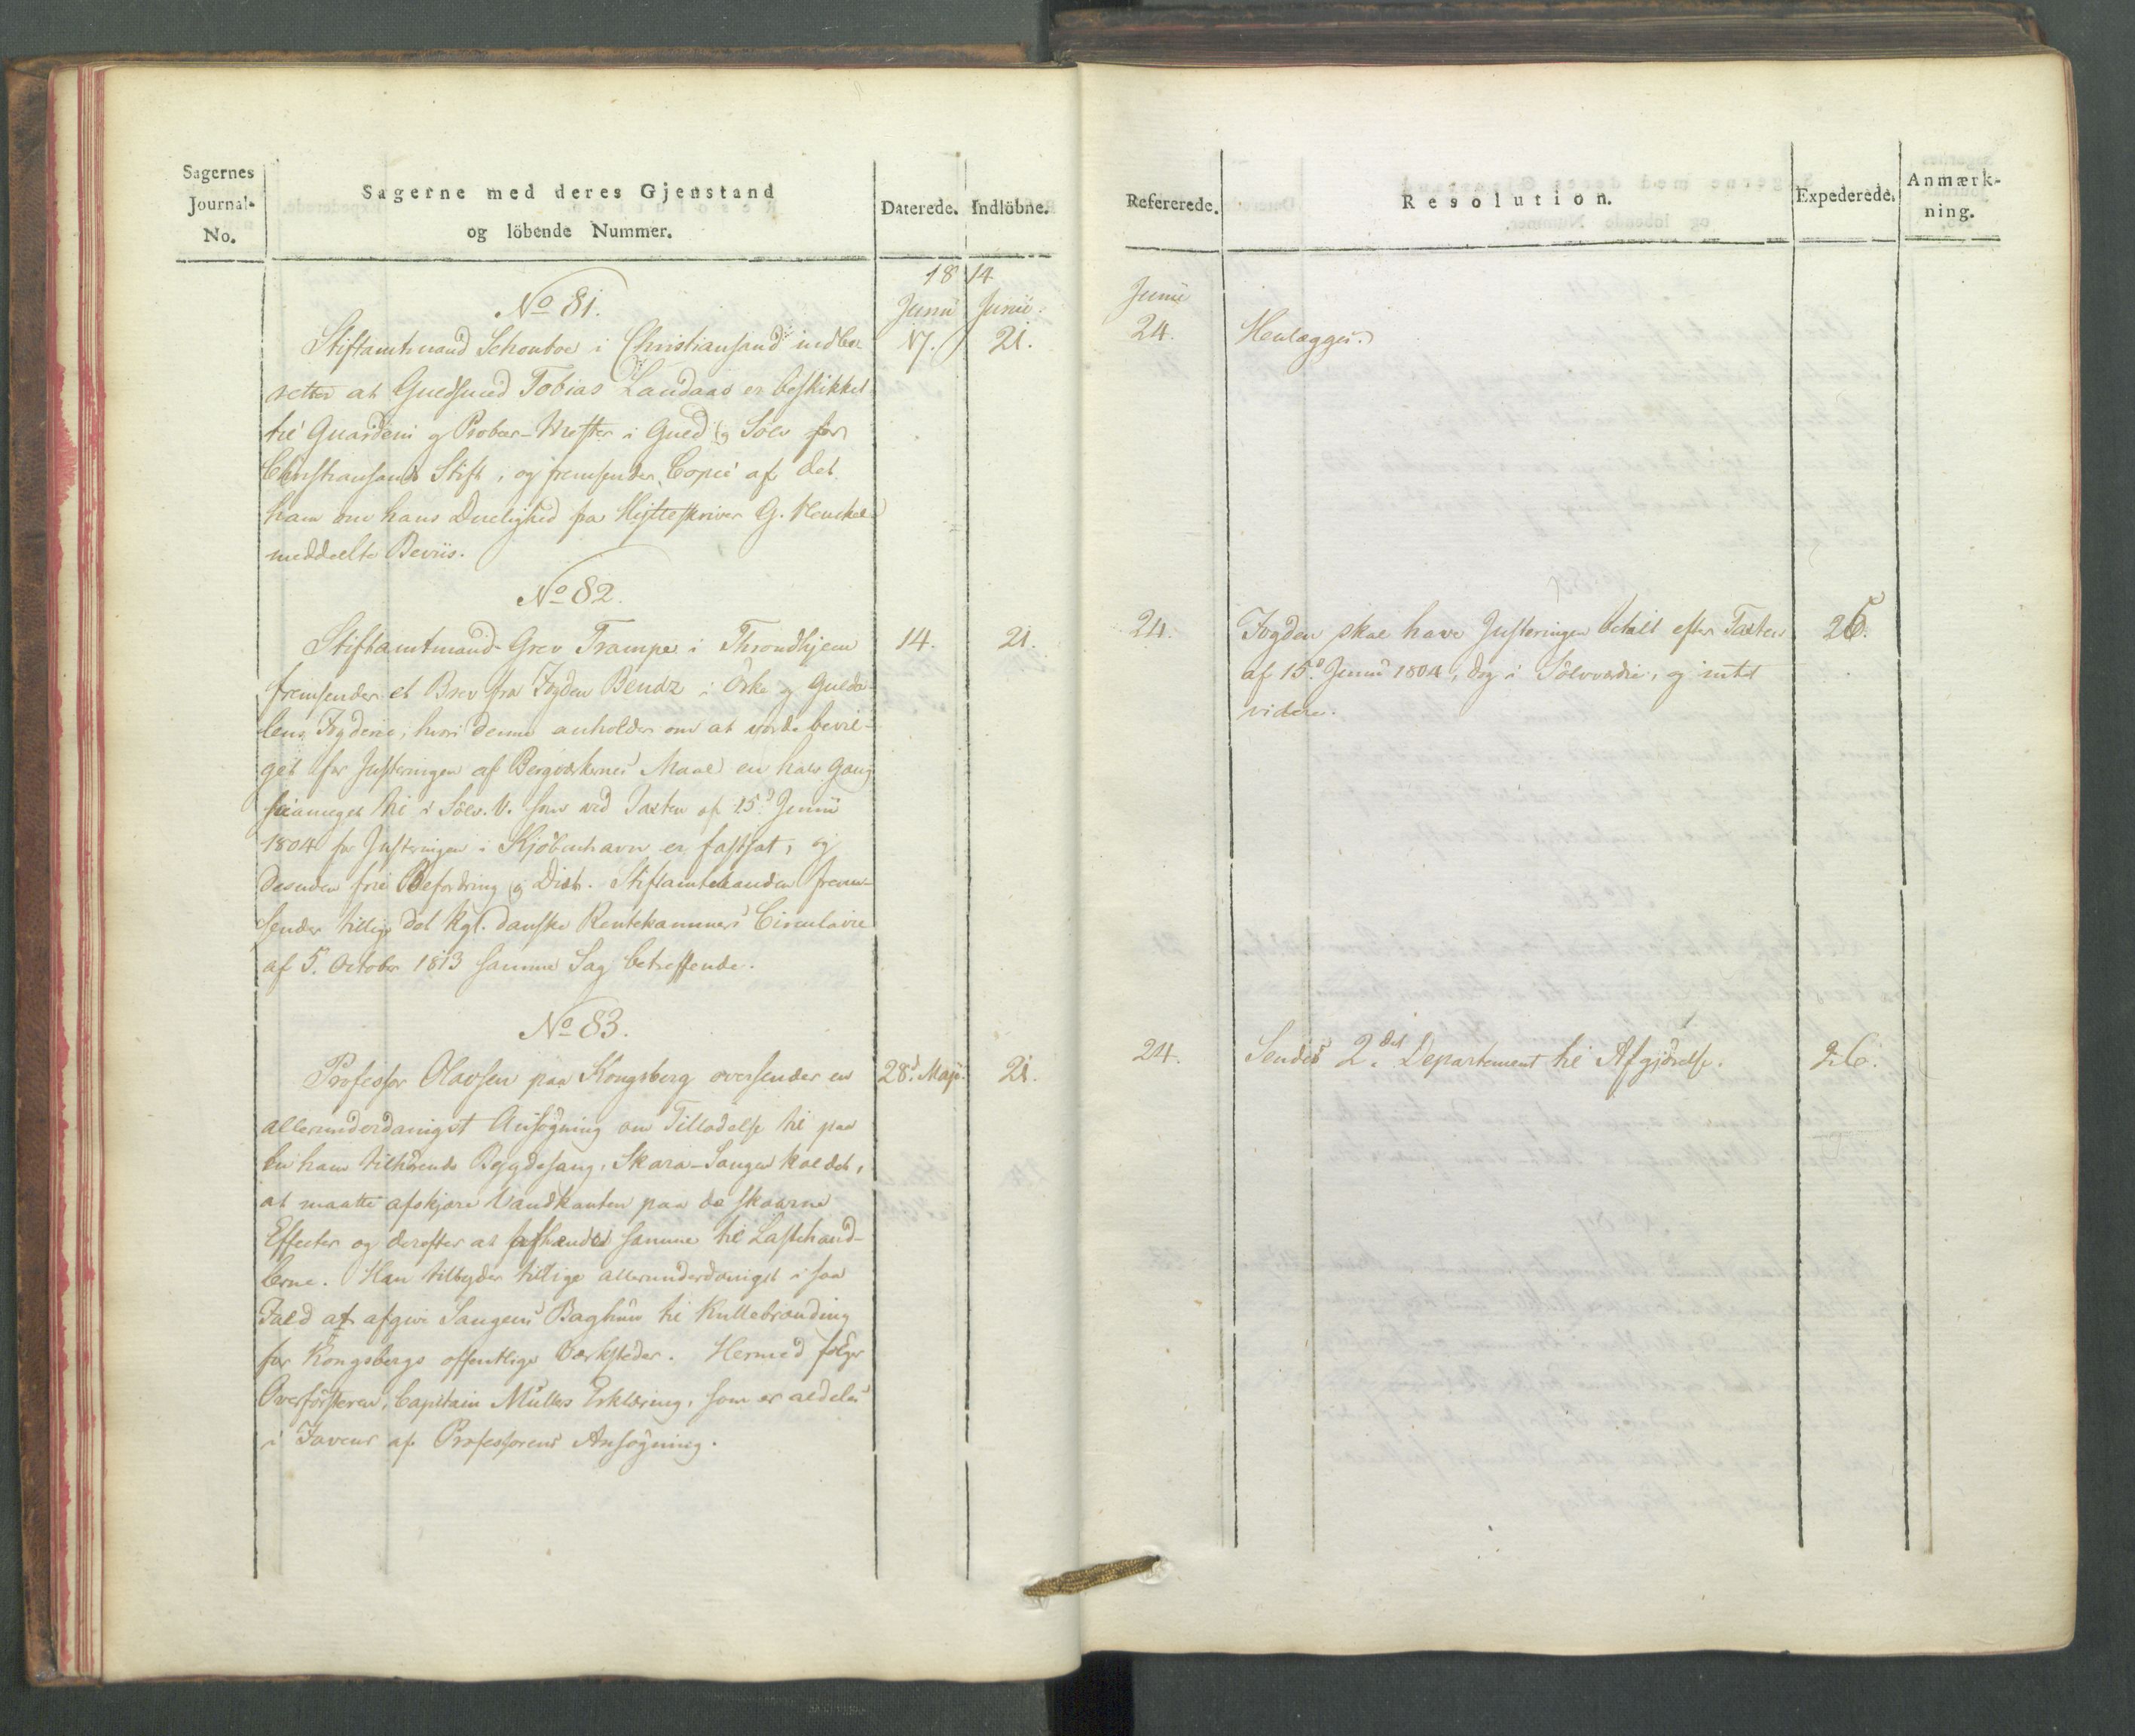 Sagernes
Journal-
No.
Sagerne med deres Gjenstand
og löbende Nummer.
Daterede.
Indlöbne.
1814
Junii
Junii.
No 81.
Stiftamtmand Schouboe i Christiansand indbe-
17.
21.
retter at Guldsmed Tobias Landaas er beskikket
til Guardein og Probeer-Mester i Guld og Sölv for
Christiansands Stift, og fremsender Copie af det
ham om hans Duelighed fra Hytteskriver G. Henckel
meddeelte Beviis.
No 82.
Stiftamtmand Grev Trampe i Throndhjem
14.
21.
fremsender et Brev fra Fogden Bendz i Örke og Gulda-
lens Fogderie, hvori denne anholder om at vorde bevil-
get for Justeringen af Bergværkernes Maal en halv Gang
saameget til i Sölv. V. som ved Taxten af 15d Junii
1804 for Justeringen i Kjöbenhavn er fastsat, og
desuden frie Befordring og Diæt. Stiftamtmanden frem-
sender tillige det Kgl. danske Rentekammers Circulaire
af 5. October 1813 samme Sag betreffende.
No 83.
Professor Olavsen paa Kongsberg oversender en
28d. Maji.
21.
allerunderdanigst Ansögning om Tilladelse til paa
en ham tilhörende Bygdesaug, Skara-Saugen kaldet,
at maatte afskjære Vandkanten paa de skaarne
Effecter og derefter at afhænde samme til Lasthand-
lerne. Han tilbyder tillige allerunderdanigst i saa
Fald at afgive Saugens Baghun til Kullebrænding
for Kongsbergs offentlige Værksteder. Hermed fölger
Overförsteren, Capitain Müllers Erklæring, som er aldeles
i Faveur af Professorens Ansögning.
Refererede.
Resolution.
Expederede.
Anmærk-
ning.
Junii
24.
Henlægges.
24.
Fogden skal have Justeringen betalt efter Taxten
26.
af 15d. Junii 1804, dog i Sölvværdie, og intet
videre.
24.
Sendes 2det Departement til Afgjörelse.
26.